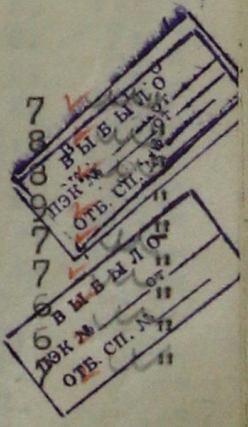 7 "
8 "
8 "
9 "
7 "
7 "
6 "
6 "
"
ВЫБЫЛО
ПЭК № от
ОТБ. СП. №
ВЫБЫЛО
ПЭК № от
ОТБ. СП. №